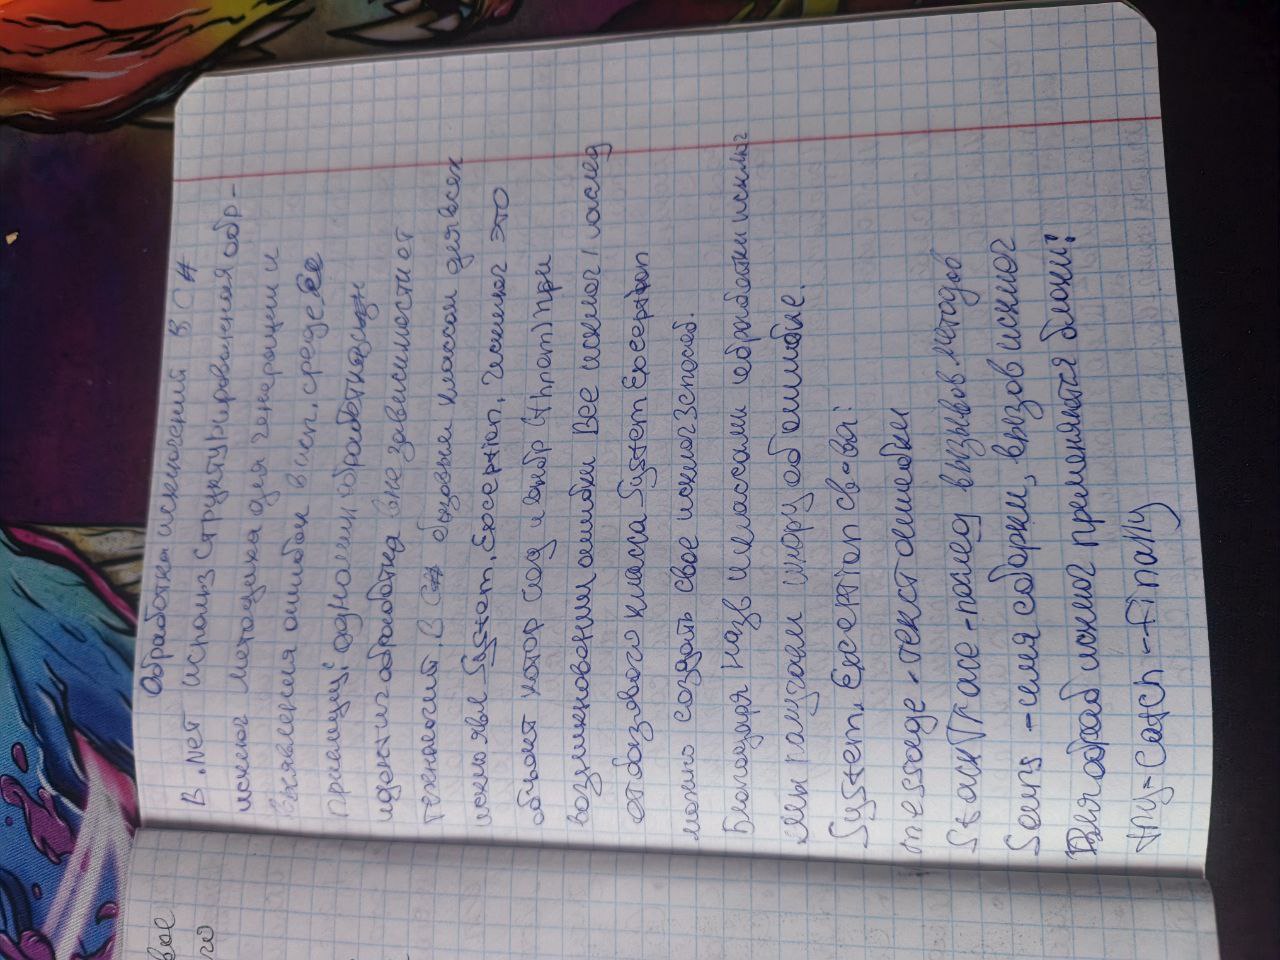 Обработка исключений в C#
В .NET использ структурированная обр-
исключ методика для генерации и
выявления ошибок в исп. среде. Ее
преимущ: однотип обработка
идентич обработка вне зависимости от
технолог. В C# базовым классом для всех
исключ явл System.Exception. Исключ это
объект котор созд и выбр (throw) при
возникновении ошибки Все исключ наслед
от базового класса System Exception
можно создать свое исключ
Благодаря назв и классам обработки исключ
мы получаем инфу об ошибке.
System.Exception св-ва:
message - текст ошибки
StackTrace - послед вызывов методов
Sours - имя сборки, вызов исключ
Для обраб исключ применяются блоки:
try-catch-finally
вое
го